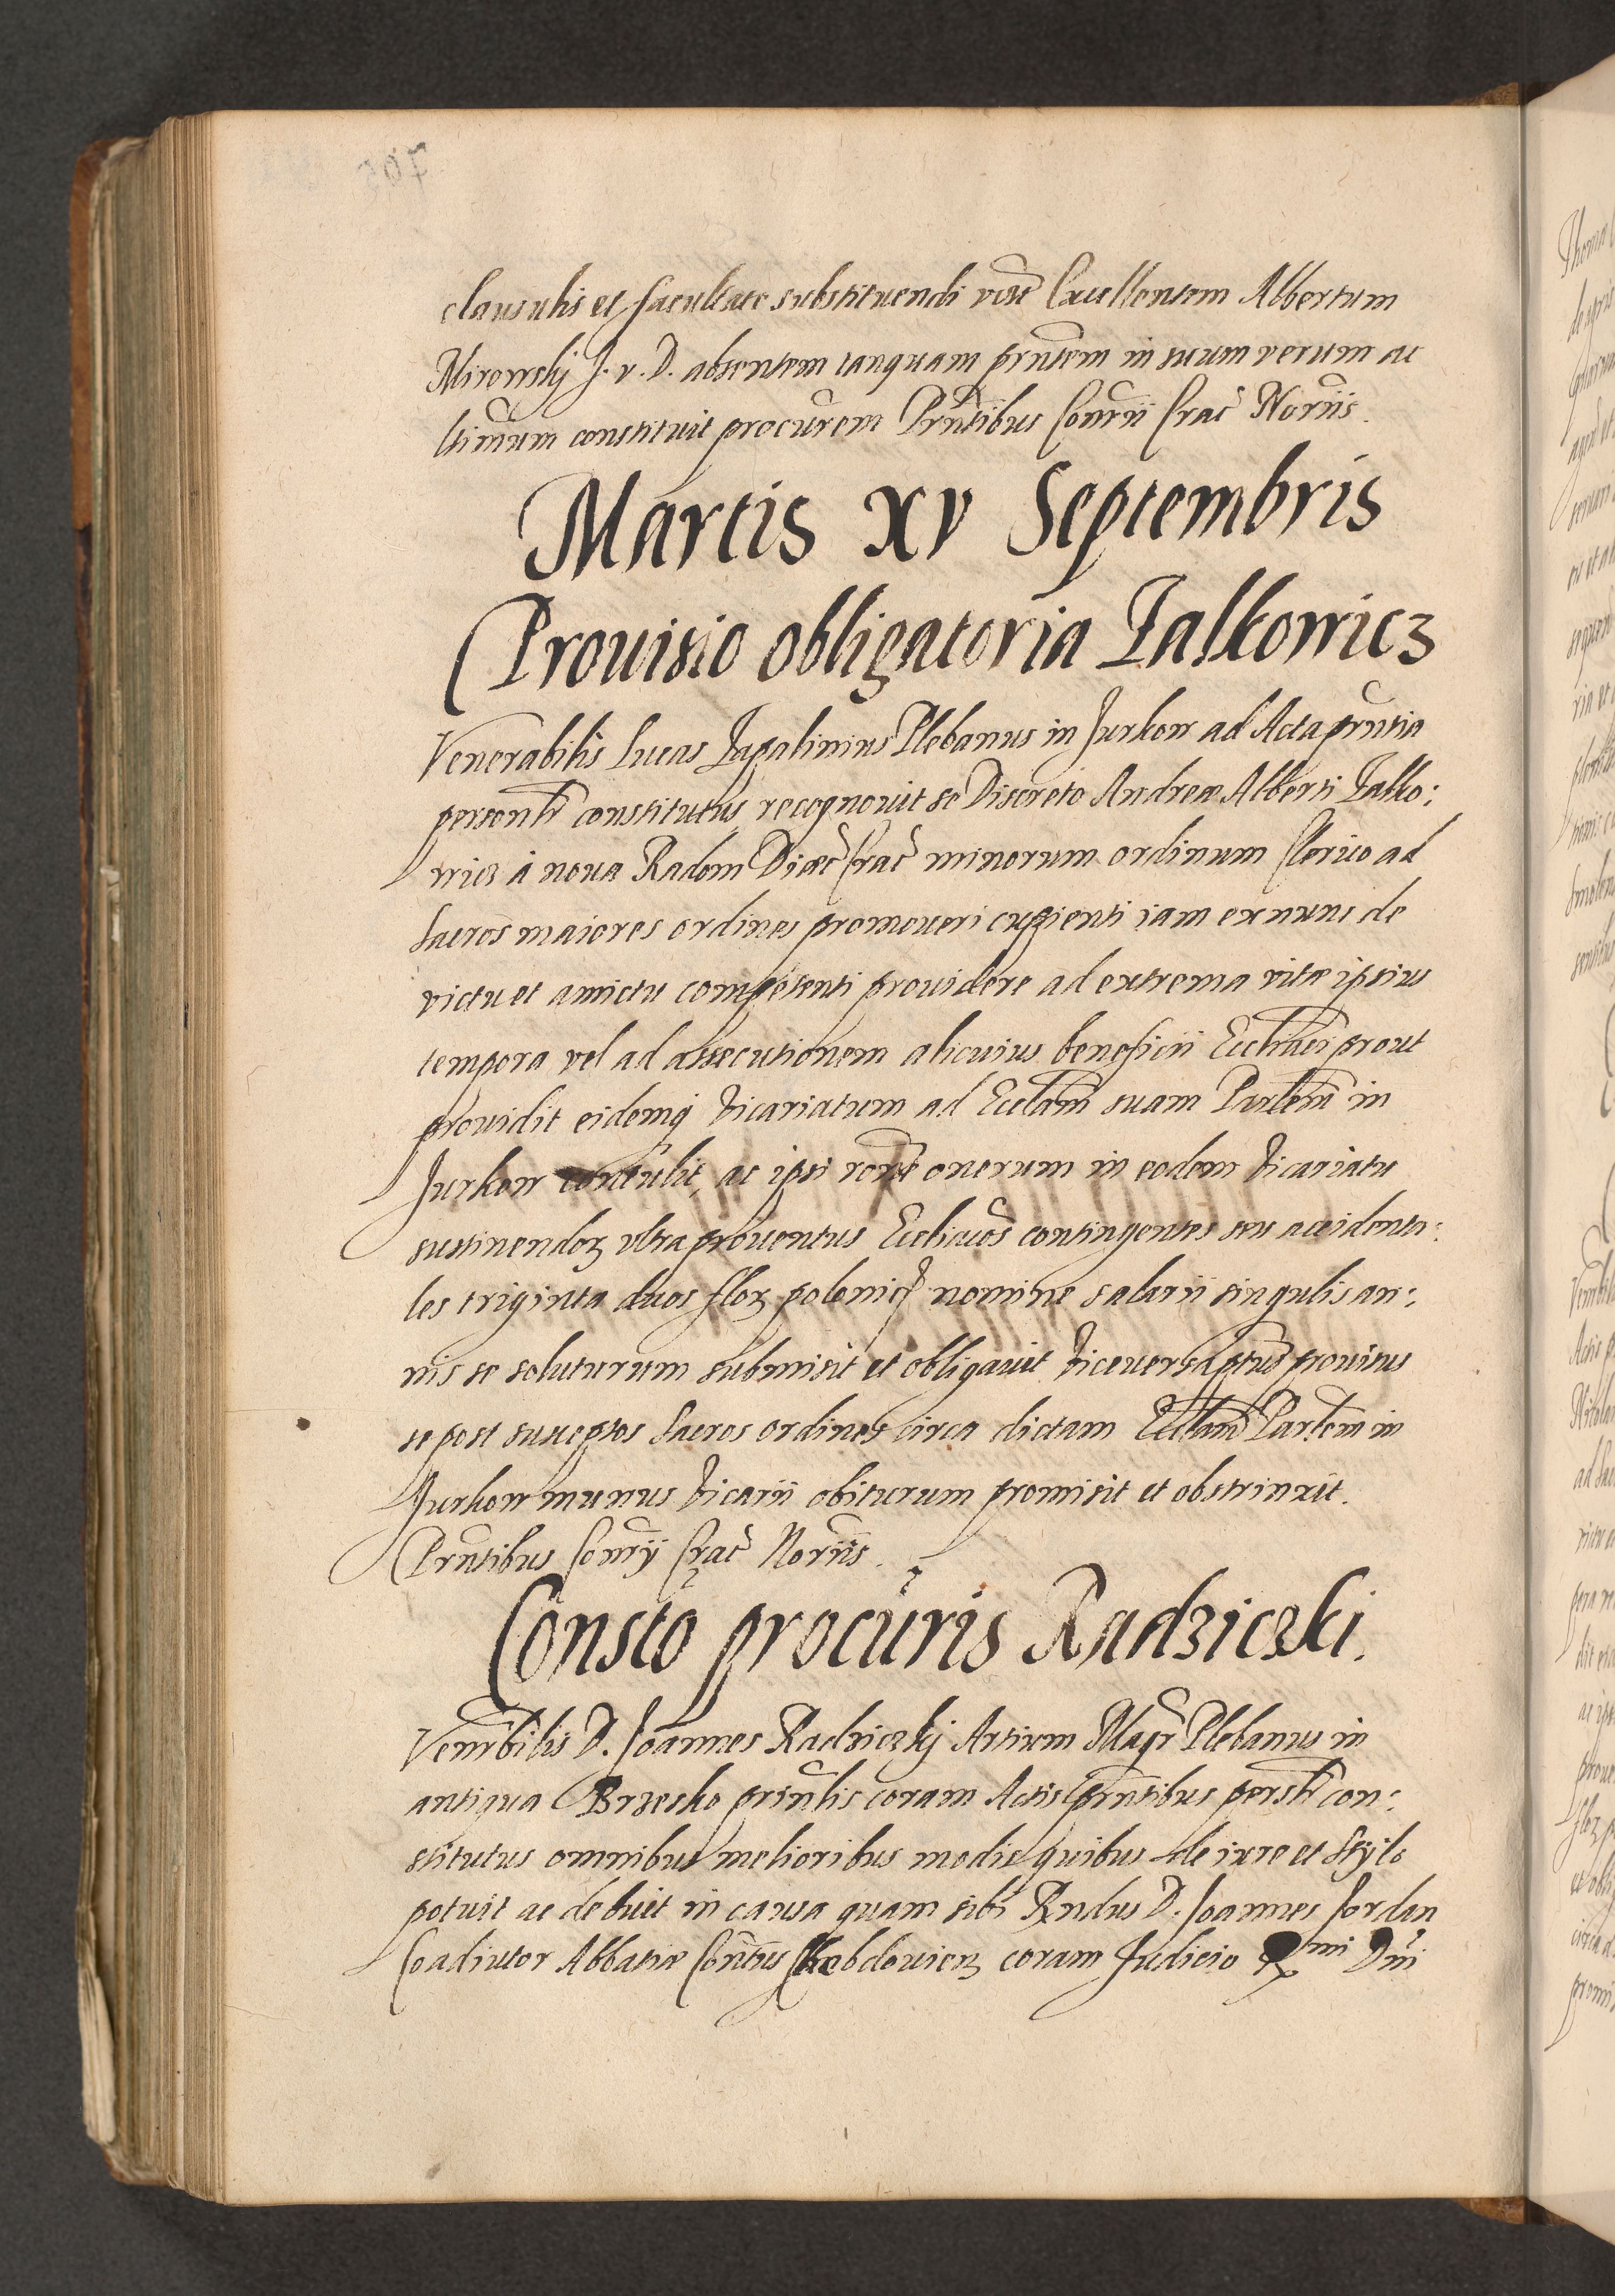 clausulis et facultate substituendi vĩne Excellentem Albertum
Mirowskÿ J. v. D. absentem tanquam prñtem in suum verum ac
ltimum constituit procũrem Prñtibus Consrii Crac̃ Norĩis.
Martis xv Septembris
Prouisio obligatoria Falkowicz
Venerabilis Lucas Papalinius Plebanus in Jurkow ad Acta prñtia
personlr̃ constitutus recognouit se Discreto Andreæ Alberti Falko:
wicz à noua Radom Diæc̃ Crac̃ minorum ordinum Clerico ad
Sacros maiores ordines promoueri cupienti iam exnunc de
victu et amictu competenti prouidere ad extrema vitæ ipsius
tempora vel ad assecutionem alicuius beneficii Ecclĩaci prout
prouidit eidemq́ Vicariatum ad Ecclãm suam Parlẽm in
Jurkow contulit, ac ipsi rone onerum in eodem Vicariatu
sustinendoꝝ vltra prouentus Eccliacõs contingentes seu accidenta:
les triginta duos floꝝ polonic̃ nomine salarii singulis an:
nis se soluturum submisit et obligauit Viceuersa ptus prouisus
se post susceptos Sacros ordines circa dictam Ecclãm Parlẽm in
Jurkow munus Vicarii obiturum promisit et obstrinxit.
Prñtibus Consrij Crac̃ Norĩis.
Constõ procũris Radziczki.
Venrb̃ilis D. Joannes Radziczkij Artium Magr̃ Plebanus in
antiqua Brzesko prinl̃is coram Actis prñtibus perslr̃ con:
stitutus omnibus melioribus modis quibus de iure et Stylo
potuit ac debuit in causa quam sibi Rndus D. Joannes Jordan
Coadiutor Abbatiæ Conṽtus Hebdouieñ coram Judicio Rmi Dñi